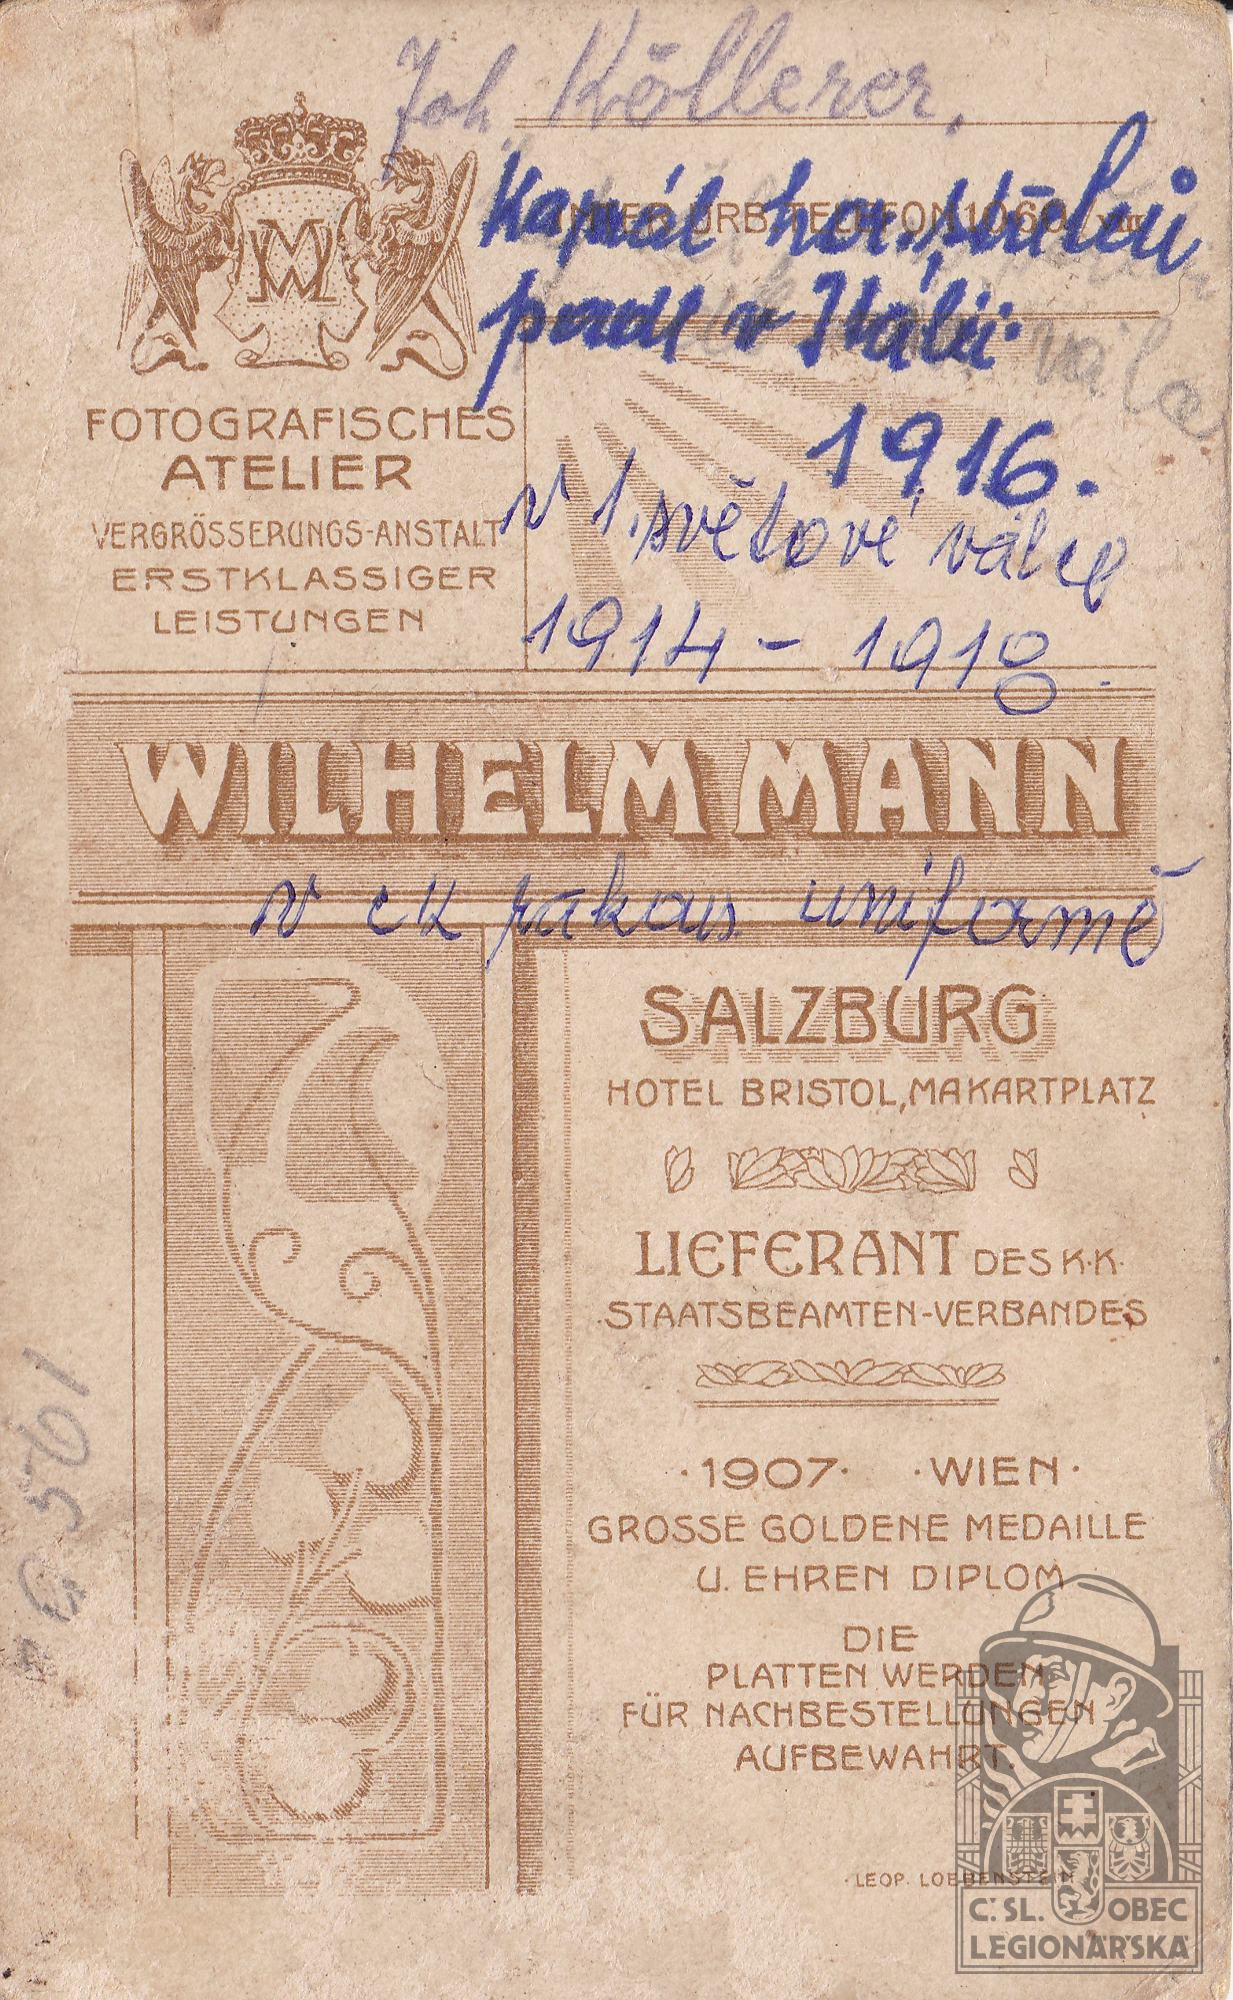 Joh Köllerer.
INTERURB. TELEFON 1060/VIII
Kaprál hor. střelců
padl v Itálii
1916.
v 1. světové válce
1914 - 1918.
WM
FOTOGRAFISCHES
ATELIER
VERGRÖSSERUNGS-ANSTALT
ERSTKLASSIGER
LEISTUNGEN
WILHELM MANN
v ck rakous. uniformě
SALZBURG
HOTEL BRISTOL, MAKARTPLATZ
LIEFERANT DES K.K.
STAATSBEAMTEN-VERBANDES
·1907· ·WIEN·
GROSSE GOLDENE MEDAILLE
U. EHREN DIPLOM
DIE
PLATTEN WERDEN
FÜR NACHBESTELLUNGEN
AUFBEWAHRT.
LEOP. LOEBENSTEIN
Č. SL. OBEC
LEGIONÁŘSKÁ